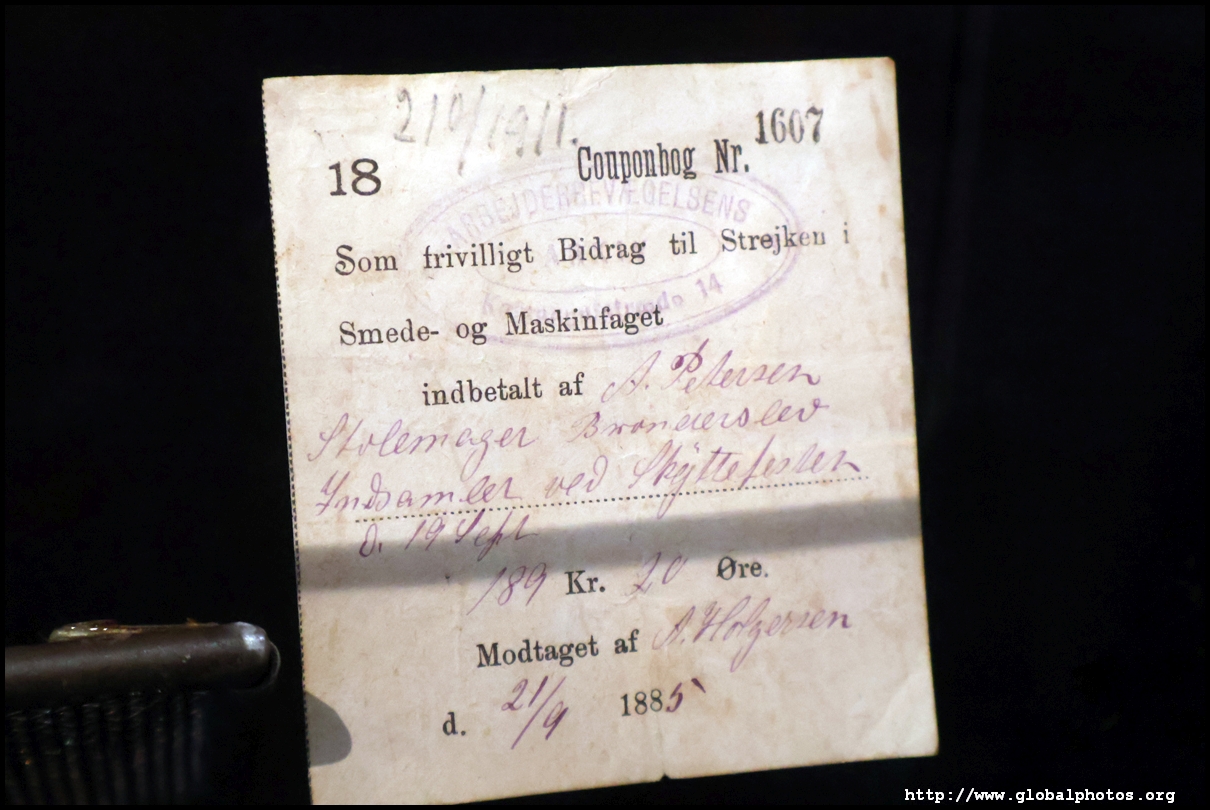 210/1911.
18
Couponbog Nr. 1607
ARBEJDERBEVÆGELSENS
Som frivilligt Bidrag til Strejken i
14
Smede- og Maskinfaget
indbetalt af A. Petersen
Stolemager Brønderslev
Indsamlet ved Skÿttefesten
d. 19 Sept
189 Kr. 20 Øre.
Modtaget af A. Holgersen
d. 21/9 1885
http://www.globalphotos.org